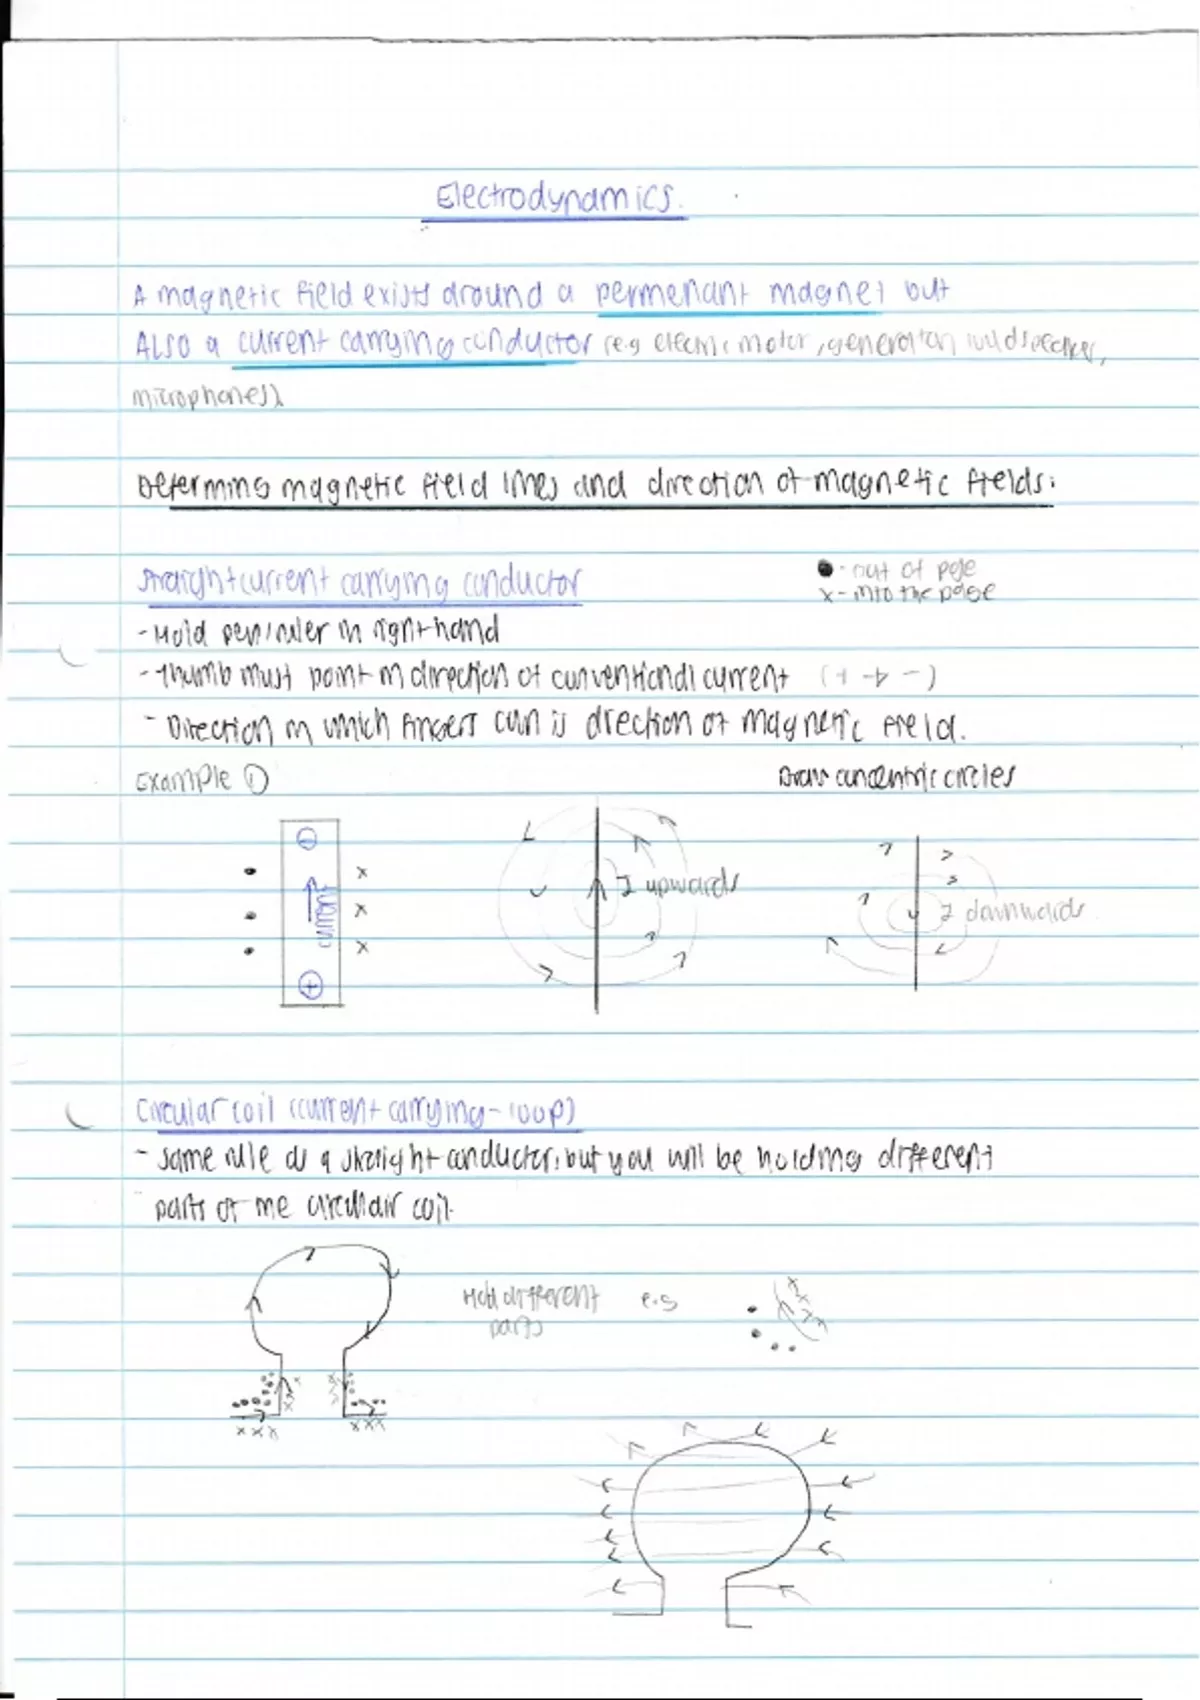 Electrodynamics.
A magnetic field exists around a permenant magnet but
Also a current carrying conductor (e.g electric motor, generator, loudspeaker,
microphones).
Determining magnetic field lines and direction of magnetic fields:
Straight current carrying conductor
● - out of page
x - into the page
- Hold pen/ruler in right hand
- Thumb must point in direction of conventional current (+ → -)
- Direction in which fingers curl is direction of magnetic field.
Example ①
Draw concentric circles
⊖
current
⊕
x
x
x
I upwards
I downwards
Circular coil (current carrying-loop)
- Same rule as a straight conductor, but you will be holding different
parts of the circular coil.
Hold different e.g
parts
x x x
x x x